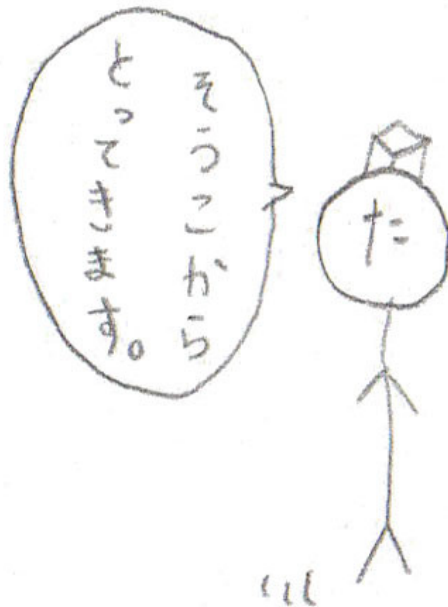 そうこから
とってきます。
た